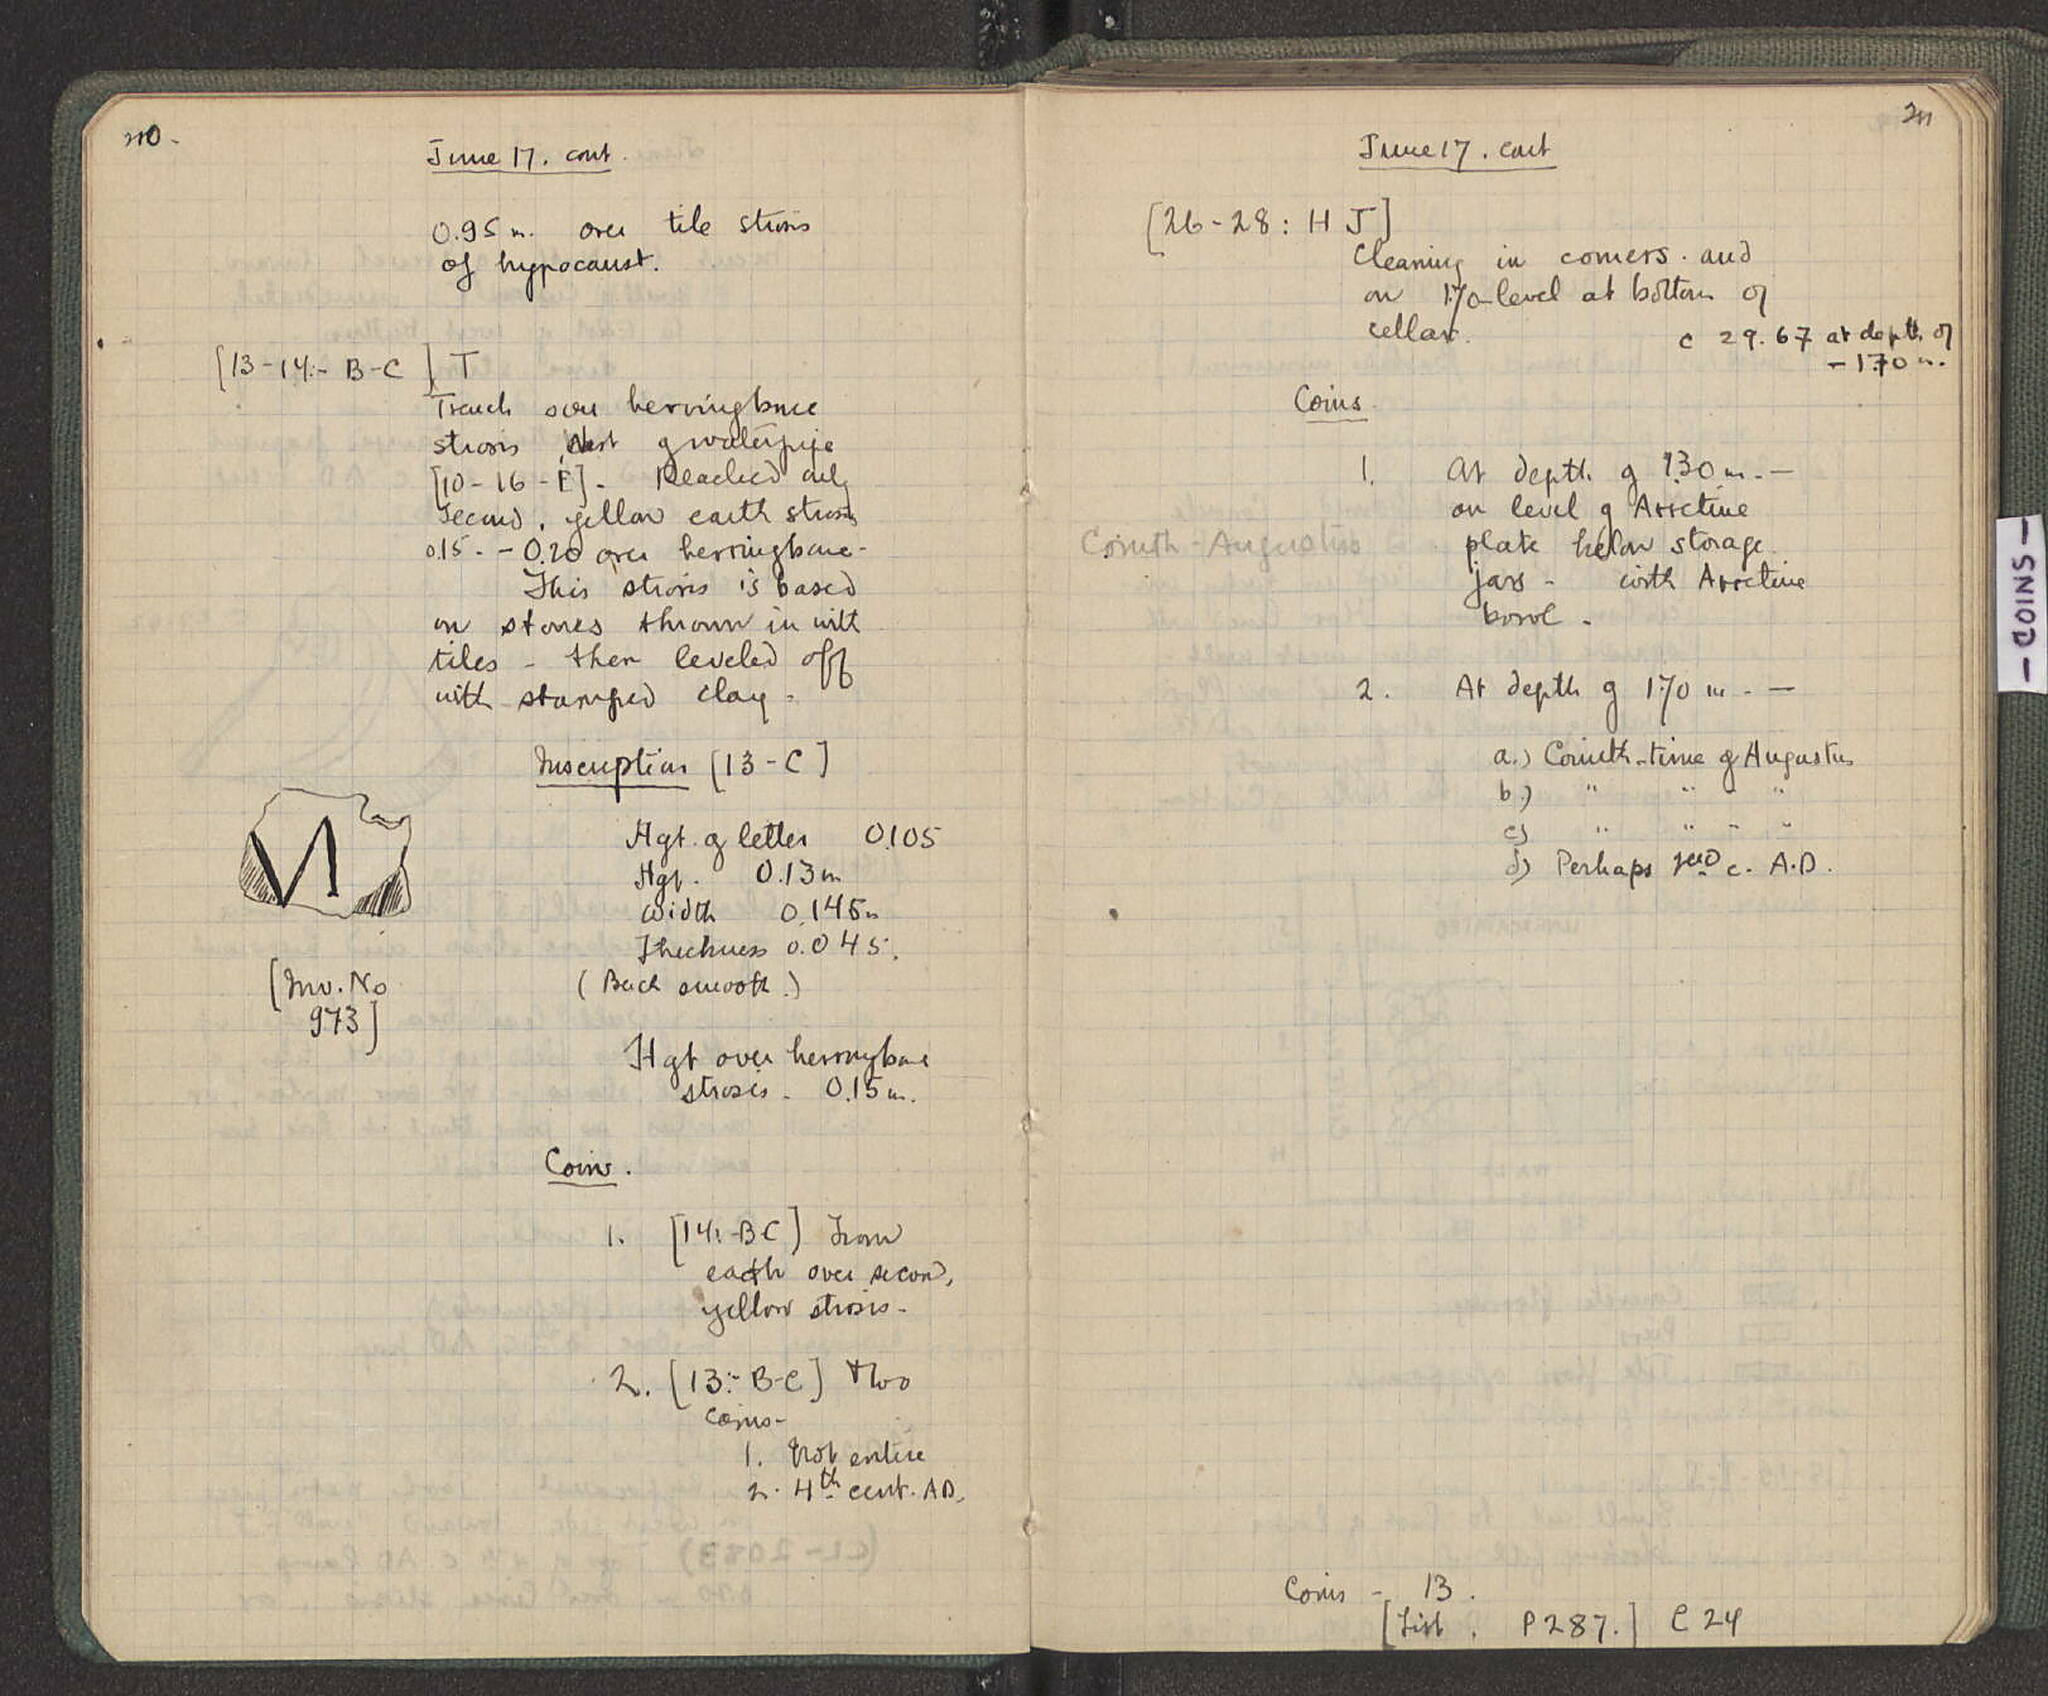 210.
June 17. cont.
0.95 m. over tile strosis
of hypocaust.
[13-14:- B-C] T
Trench over herringbone
strosis West of waterpipe
[10-16-E]. Reached only
second, yellow earth strosis
0.15. - 0.20 over herringbone-
This strosis is based
on stones thrown in with
tiles - then leveled off
with stamped clay -
Inscription [13-C]
Hgt. of letter 0.105
Hgt. 0.13 m
Width 0.145 m
Thickness 0.045.
(Back smooth.)
[Inv. No
973]
Hgt over herringbone
strosis - 0.15 m.
Coins.
1. [14:-BC] From
earth over second,
yellow strosis-
2. [13:- B-C] two
coins-
1. Not entire
2. 4th cent. AD.
211
June 17. cont
[26-28: H J]
Cleaning in corners. and
on 1.70 level at bottom of
cellar.
c 29.67 at depth of
- 1.70 m.
Coins.
1. At depth of 1.30 m. —
on level of Arretine
plate below storage
jars - with Arretine
bowl -
Corinth-Augustus
2. At depth of 1.70 m - —
a.) Corinth-time of Augustus
b.) " " - "
c) " " - "
d) Perhaps 2nd c. A.D.
Coins - 13.
[List. P 287.] C 24
- COINS -